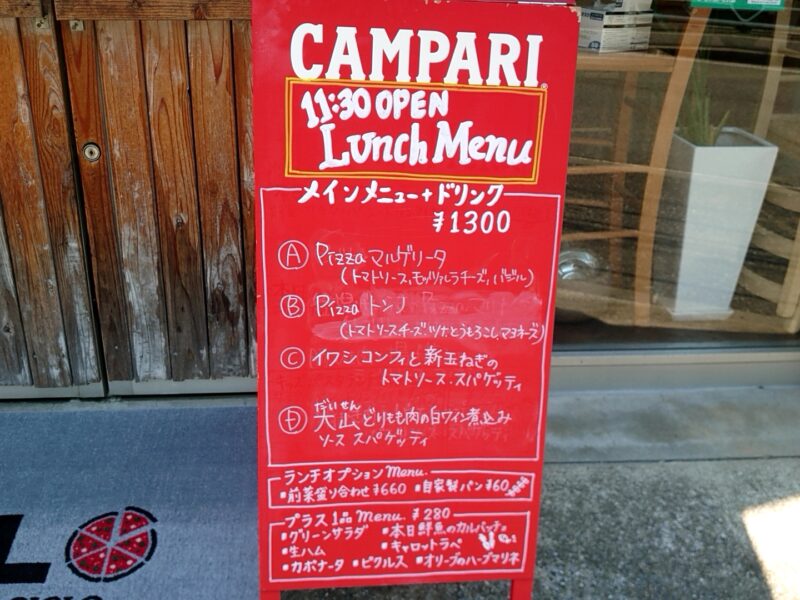 CAMPARI
11:30 OPEN
Lunch Menu
メインメニュー+ドリンク
¥1300
Ⓐ Pizza マルゲリータ
(トマトソース、モッツァレラチーズ、バジル)
Ⓑ Pizza トンノ
(トマトソースチーズ、ツナとうもろこし、マヨネーズ)
Ⓒ イワシコンフィと新玉ねぎの
トマトソース、スパゲッティ
だいせん
Ⓓ 大山どりもも肉の白ワイン煮込み
ソース スパゲッティ
ランチオプション Menu.
・前菜盛り合わせ ¥660 ・自家製パン ¥60
プラス1品 Menu. ¥280
・グリーンサラダ ・本日鮮魚のカルパッチョ
・生ハム ・キャロットラペ
・カポナータ ・ピクルス ・オリーブのハーブマリネ